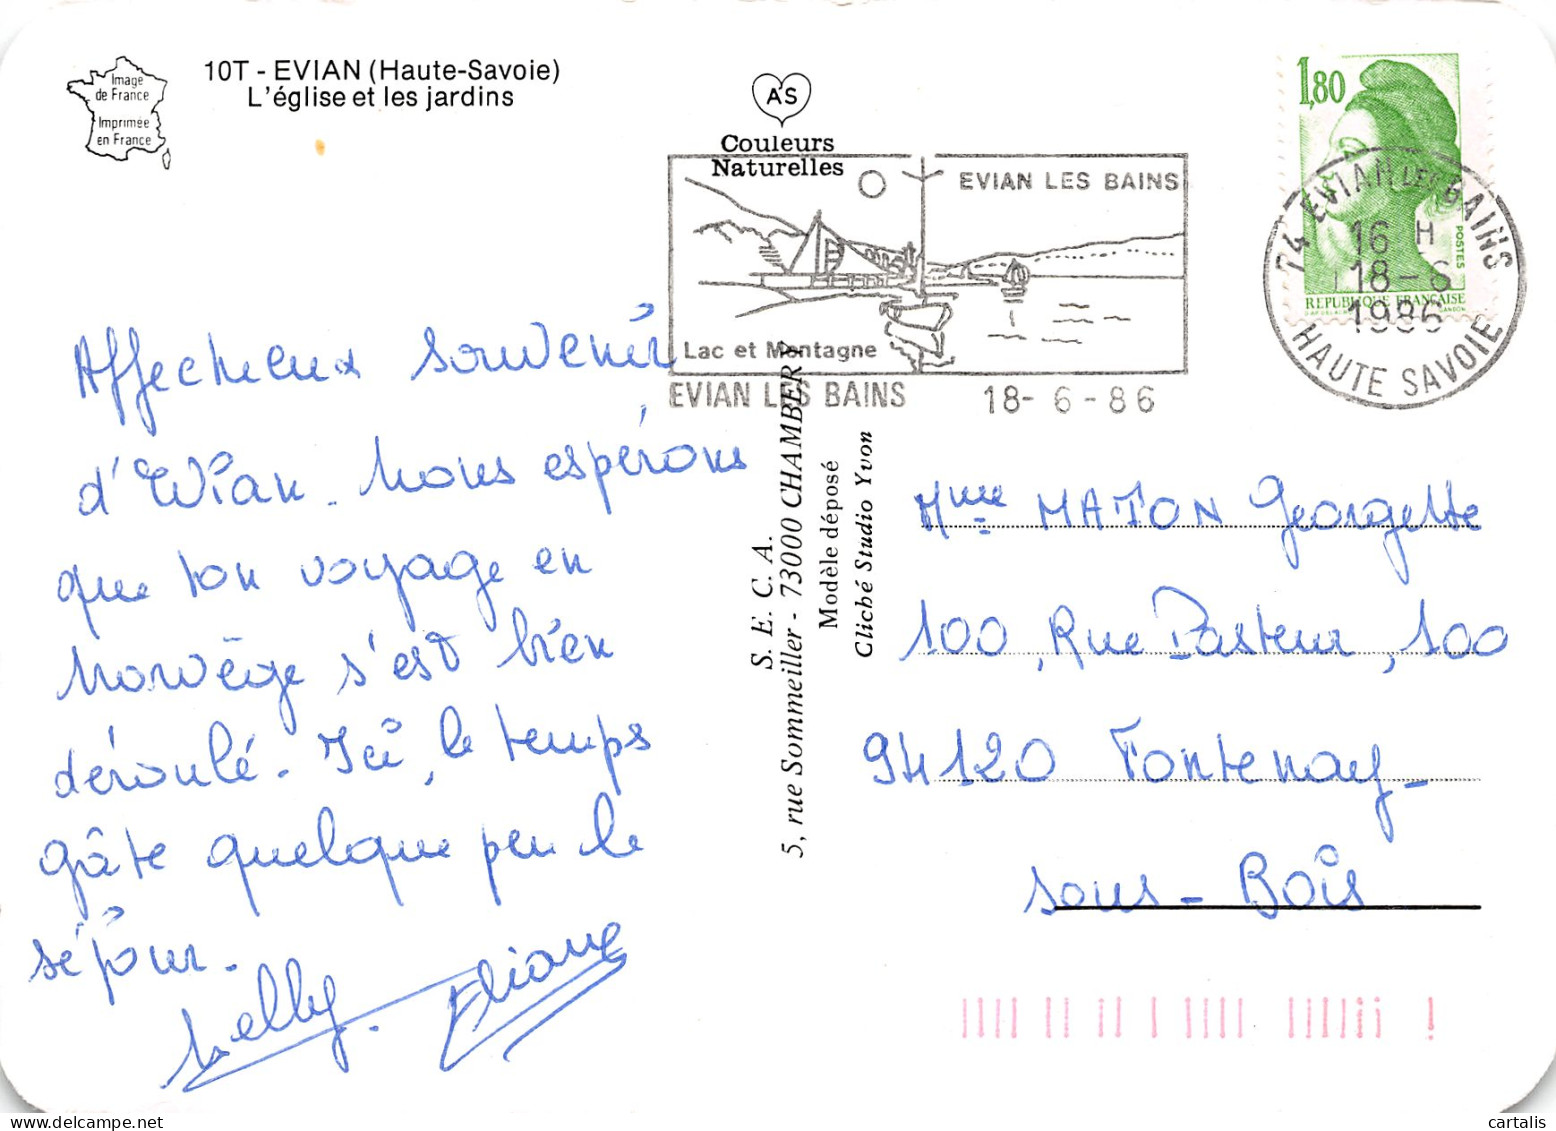 Image
de France
Imprimée
en France
10T - EVIAN (Haute-Savoie)
L'église et les jardins
A S
Couleurs
Naturelles
EVIAN LES BAINS
Lac et Montagne
EVIAN LES BAINS
18- 6 - 86
1,80
POSTES
REPUBLIQUE FRANÇAISE
74 EVIAN LES BAINS
16 H
18 - 6
1986
HAUTE SAVOIE
Affectueux souvenir
d'Evian. Nous espérons
que ton voyage en
Norvège s'est bien
déroulé. Ici, le temps
gâte quelque peu le
séjour.
Nelly. Eliane
S. E. C. A.
5, rue Sommeiller - 73000 CHAMBERY
Modèle déposé
Cliché Studio Yvon
Mme MATON Georgette
100, Rue Pasteur, 100
94120 Fontenay-
sous-Bois
cartalis